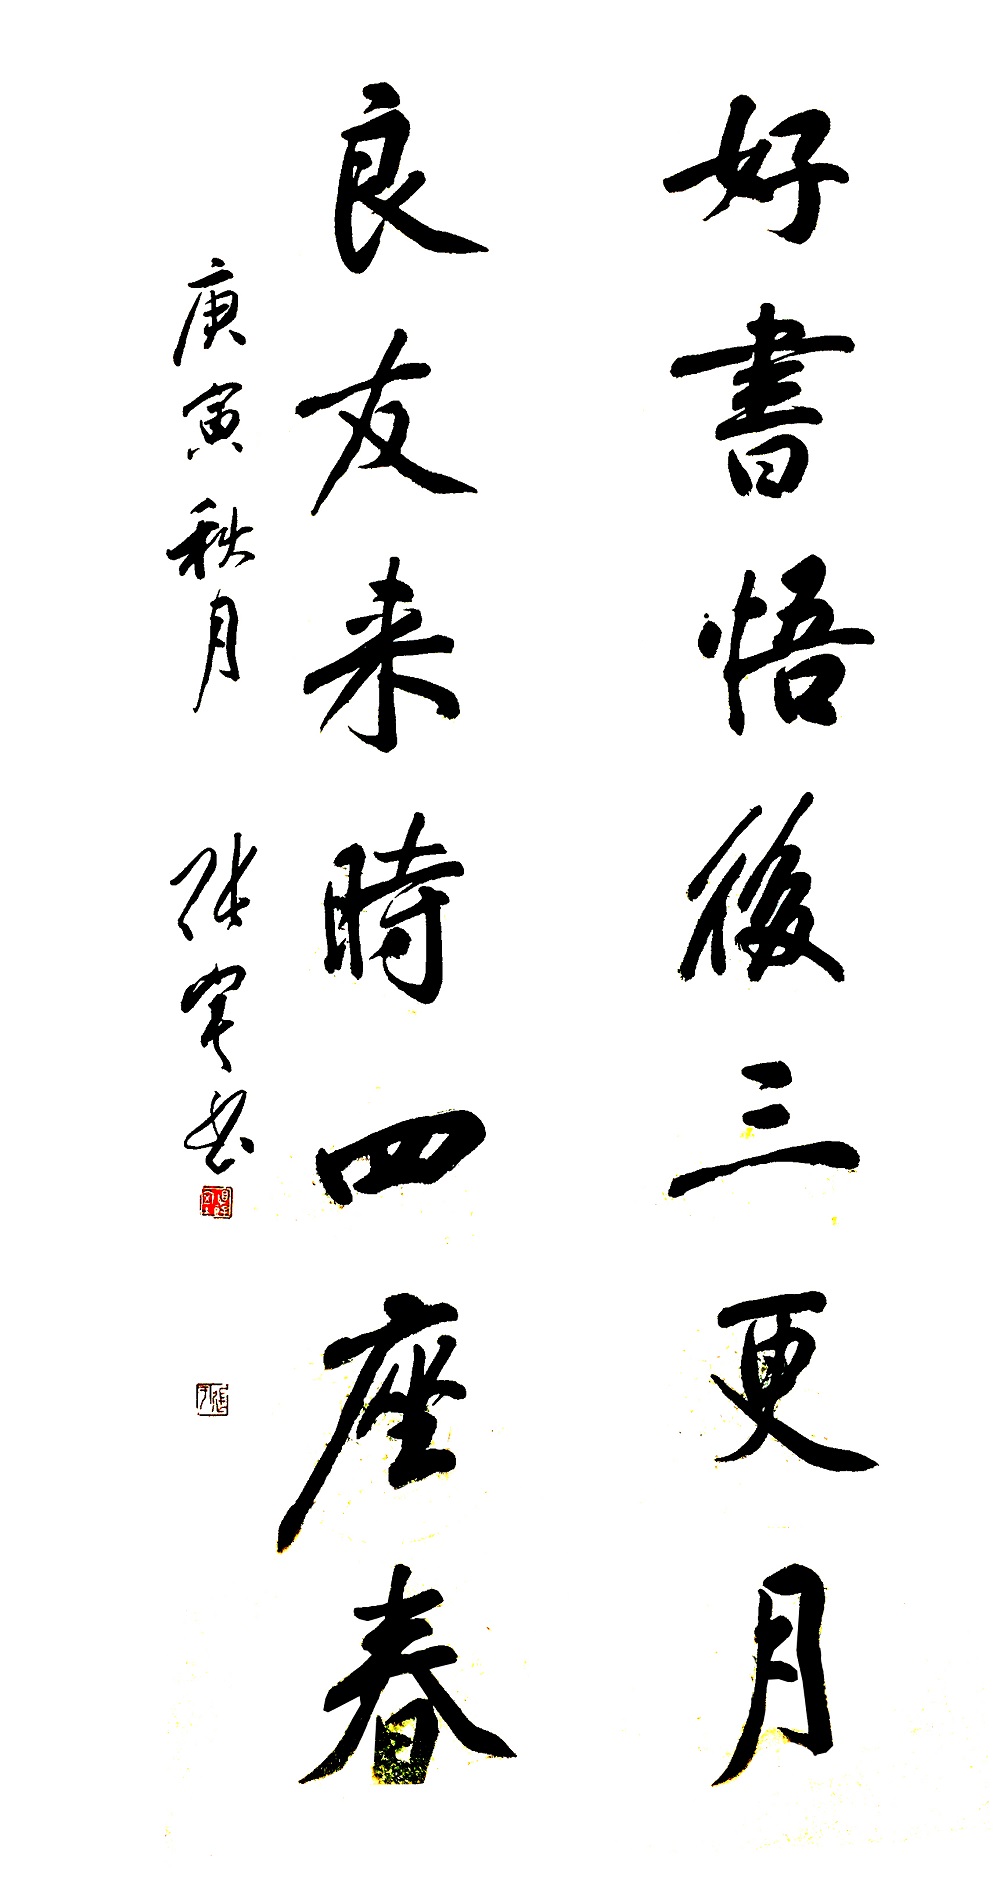 好書悟後三更月
良友来時四座春
庚寅秋月 张军书